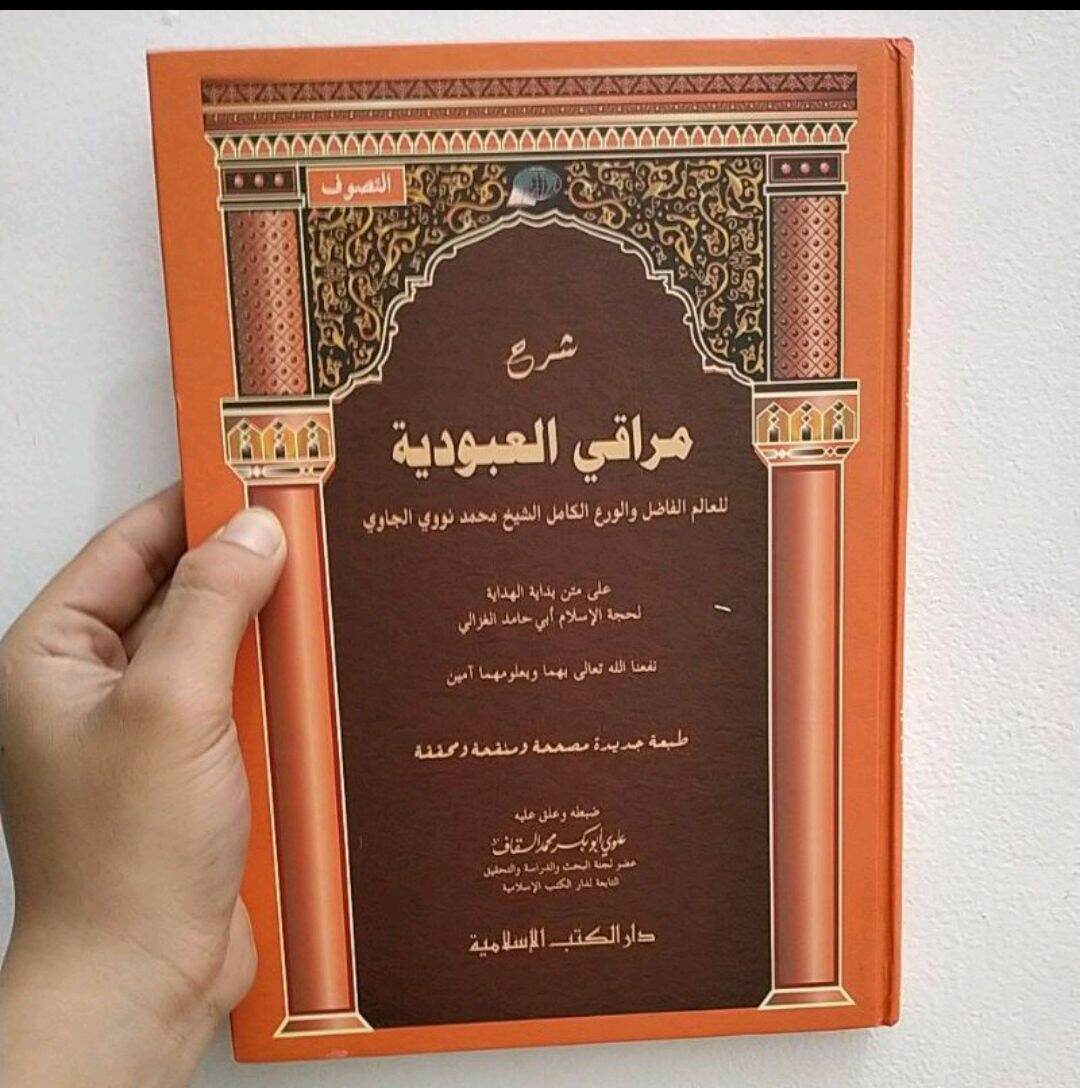 التصوف
شرح
مراقي العبودية
للعالم الفاضل والورع الكامل الشيخ محمد نووي الجاوي
على متن بداية الهداية
لحجة الإسلام أبي حامد الغزالي
نفعنا الله تعالى بهما وبعلومهما آمين
طبعة جديدة مصححة ومنقحة ومحققة
ضبطه وعلق عليه
علوي أبو بكر محمد السقاف
عضو لجنة البحث والدراسة والتحقيق
التابعة لدار الكتب الإسلامية
دار الكتب الإسلامية